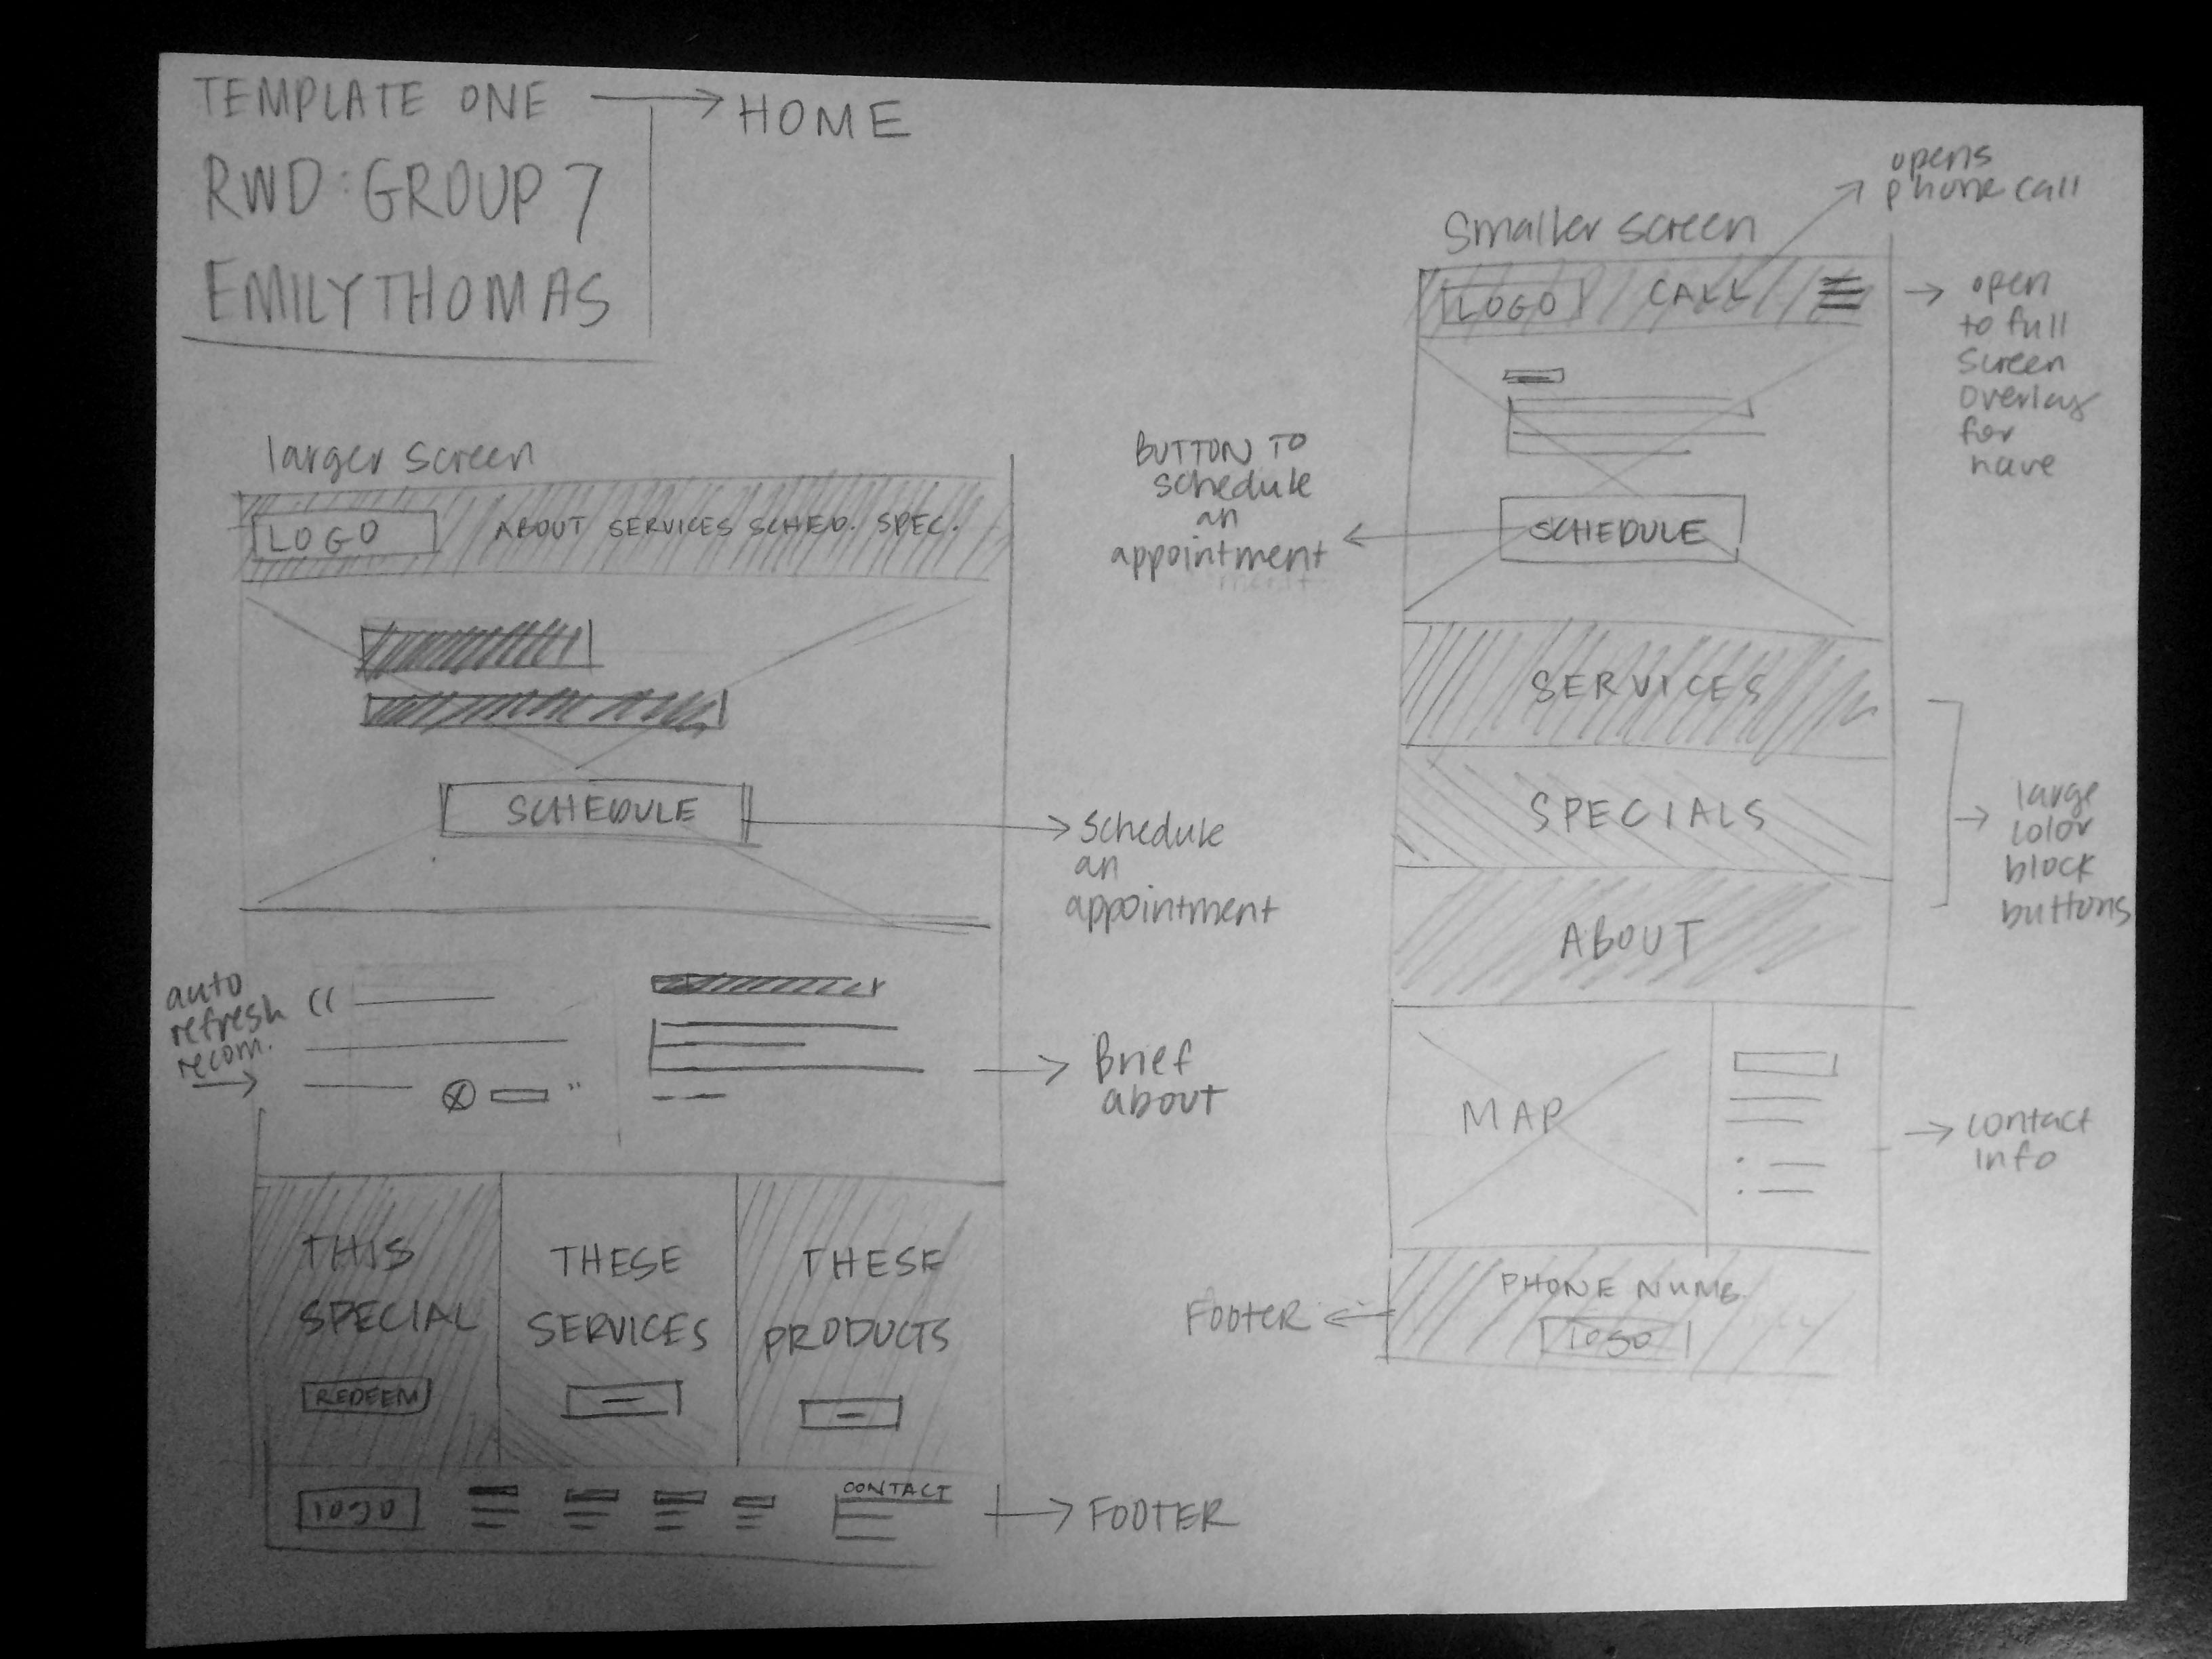 TEMPLATE ONE → HOME
RWD: GROUP 7
EMILY THOMAS
larger screen
LOGO ABOUT SERVICES SCHED. SPEC.
SCHEDULE
Schedule
an
appointment
auto
refresh
recom.
"
Brief
about
THIS
SPECIAL
REDEEM
THESE
SERVICES
THESE
PRODUCTS
logo
CONTACT
FOOTER
Smaller screen
opens
phone call
LOGO CALL
open
to full
screen
overlay
for
nave
BUTTON TO
schedule
an
appointment
SCHEDULE
SERVICES
SPECIALS
ABOUT
large
color
block
buttons
MAP
contact
info
PHONE NUMB.
logo
FOOTER